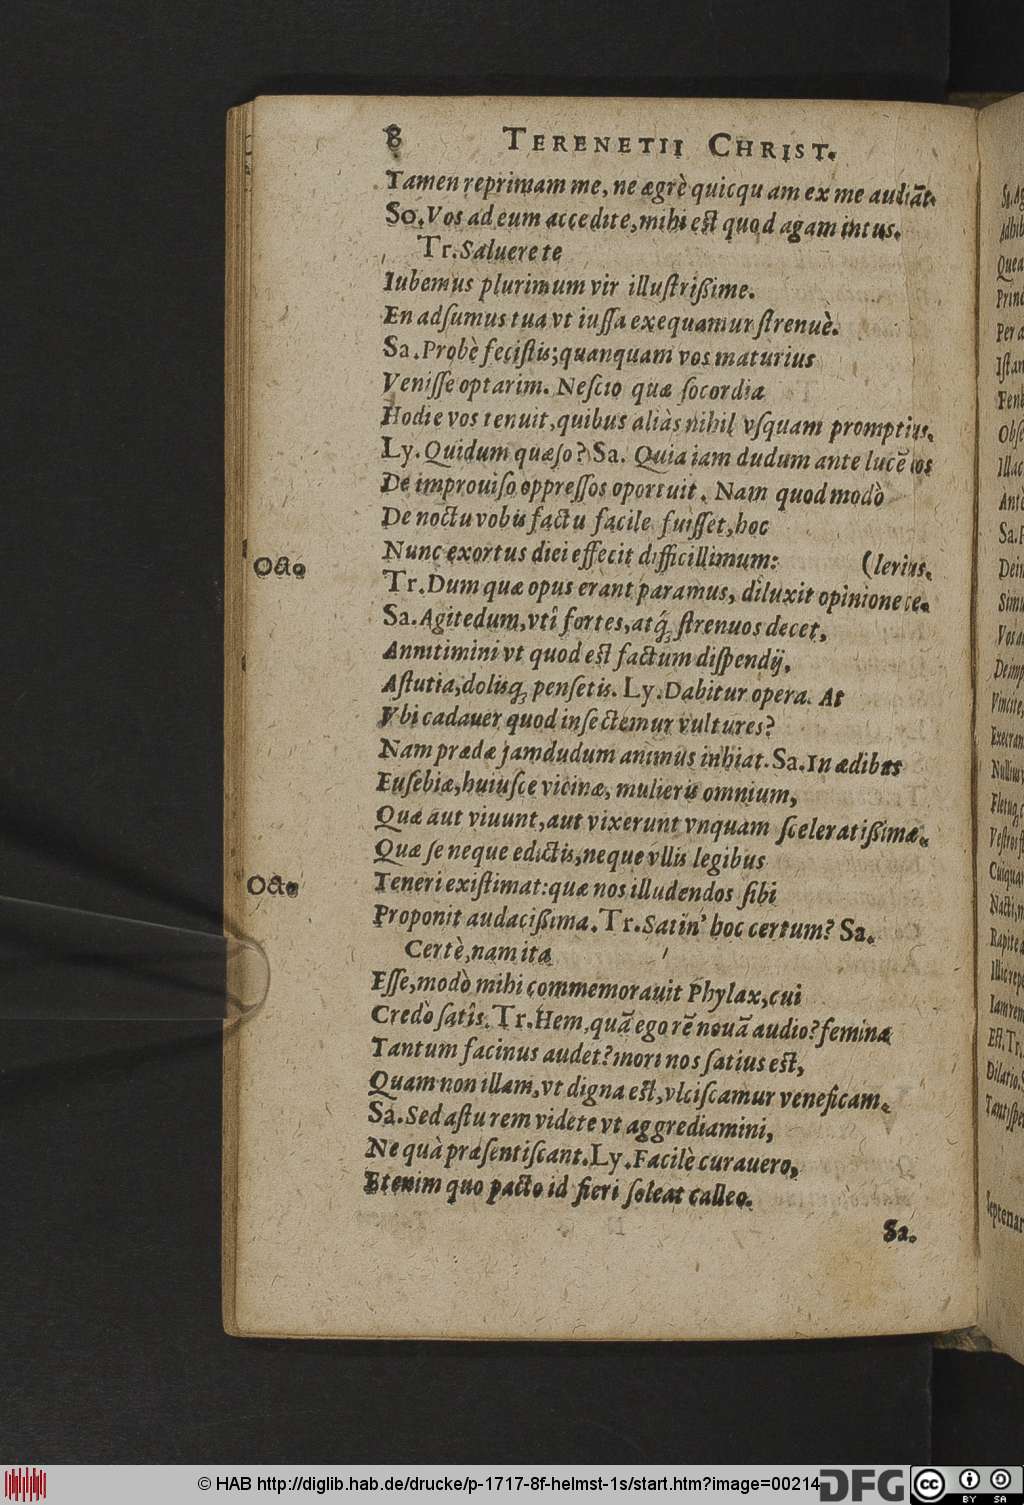 8 TERENETII CHRIST.
Tamen reprimam me, ne ægrè quicquam ex me audiāt.
So. Vos ad eum accedite, mihi est quod agam intus.
Tr. Saluere te
Iubemus plurimum vir illuſtriſsime.
En adſumus tua vt iuſſa exequamur ſtrenuè.
Sa. Probè feciſtis; quanquam vos maturius
Veniſſe optarim. Neſcio quæ ſocordia
Hodie vos tenuit, quibus aliàs nihil vſquam promptius.
Ly. Quidum quæſo? Sa. Quia iam dudum ante lucē eos
De improuiſo oppreſſos oportuit. Nam quod modò
De noctu vobis factu facile fuiſſet, hoc
Nunc exortus diei effecit difficillimum: (lerius.
Octo
Tr. Dum quæ opus erant paramus, diluxit opinione ce-
Sa. Agitedum, vtî fortes, atq́; ſtrenuos decet,
Annitimini vt quod est factum diſpendij,
Aſtutia, dolisq; penſetis. Ly. Dabitur opera. At
Vbi cadauer quod inſectemur vultures?
Nam prædæ jamdudum animus inhiat. Sa. In ædibus
Euſebiæ, huiuſce vicinæ, mulieris omnium,
Quæ aut viuunt, aut vixerunt vnquam ſceleratiſsimæ.
Quæ ſe neque edictis, neque vllis legibus
Octo
Teneri exiſtimat: quæ nos illudendos ſibi
Proponit audaciſsima. Tr. Satin' hoc certum? Sa.
Certè, nam ita
Eſſe, modò mihi commemorauit Phylax, cui
Credò ſatîs. Tr. Hem, quā ego rē nouā audio? femina
Tantum facinus audet? mori nos ſatius est,
Quam non illam, vt digna est, vlciſcamur veneficam.
Sa. Sed aſtu rem videte vt aggrediamini,
Ne quà præſentiſcant. Ly. Facilè curauero,
Etenim quo pacto id fieri ſoleat calleo.
Sa.
© HAB http://diglib.hab.de/drucke/p-1717-8f-helmst-1s/start.htm?image=00214
DFG
cc BY SA